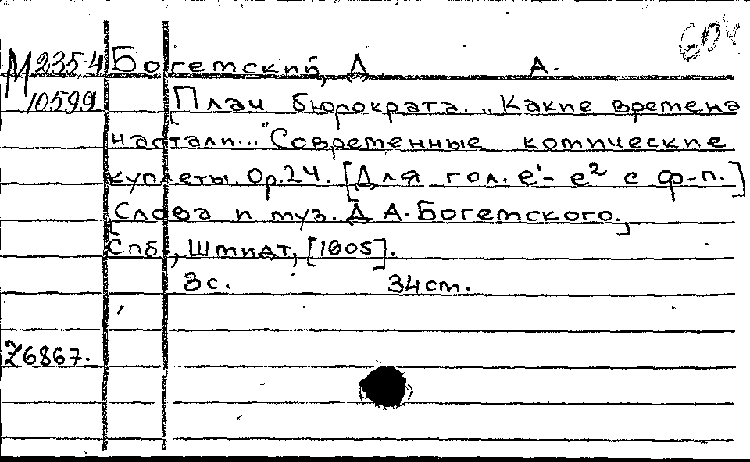 604
М 235-4 Богетский, Д А.
10599 Плач бюрократа. „Какие времена
настали..." Современные комические
куплеты. Ор. 24. [Для гол. e¹- e² с ф-п.]
[Слова и муз. Д. А. Богетского.]
Спб., Шмидт, [1905].
3 с. 34 ст.
Z6867.